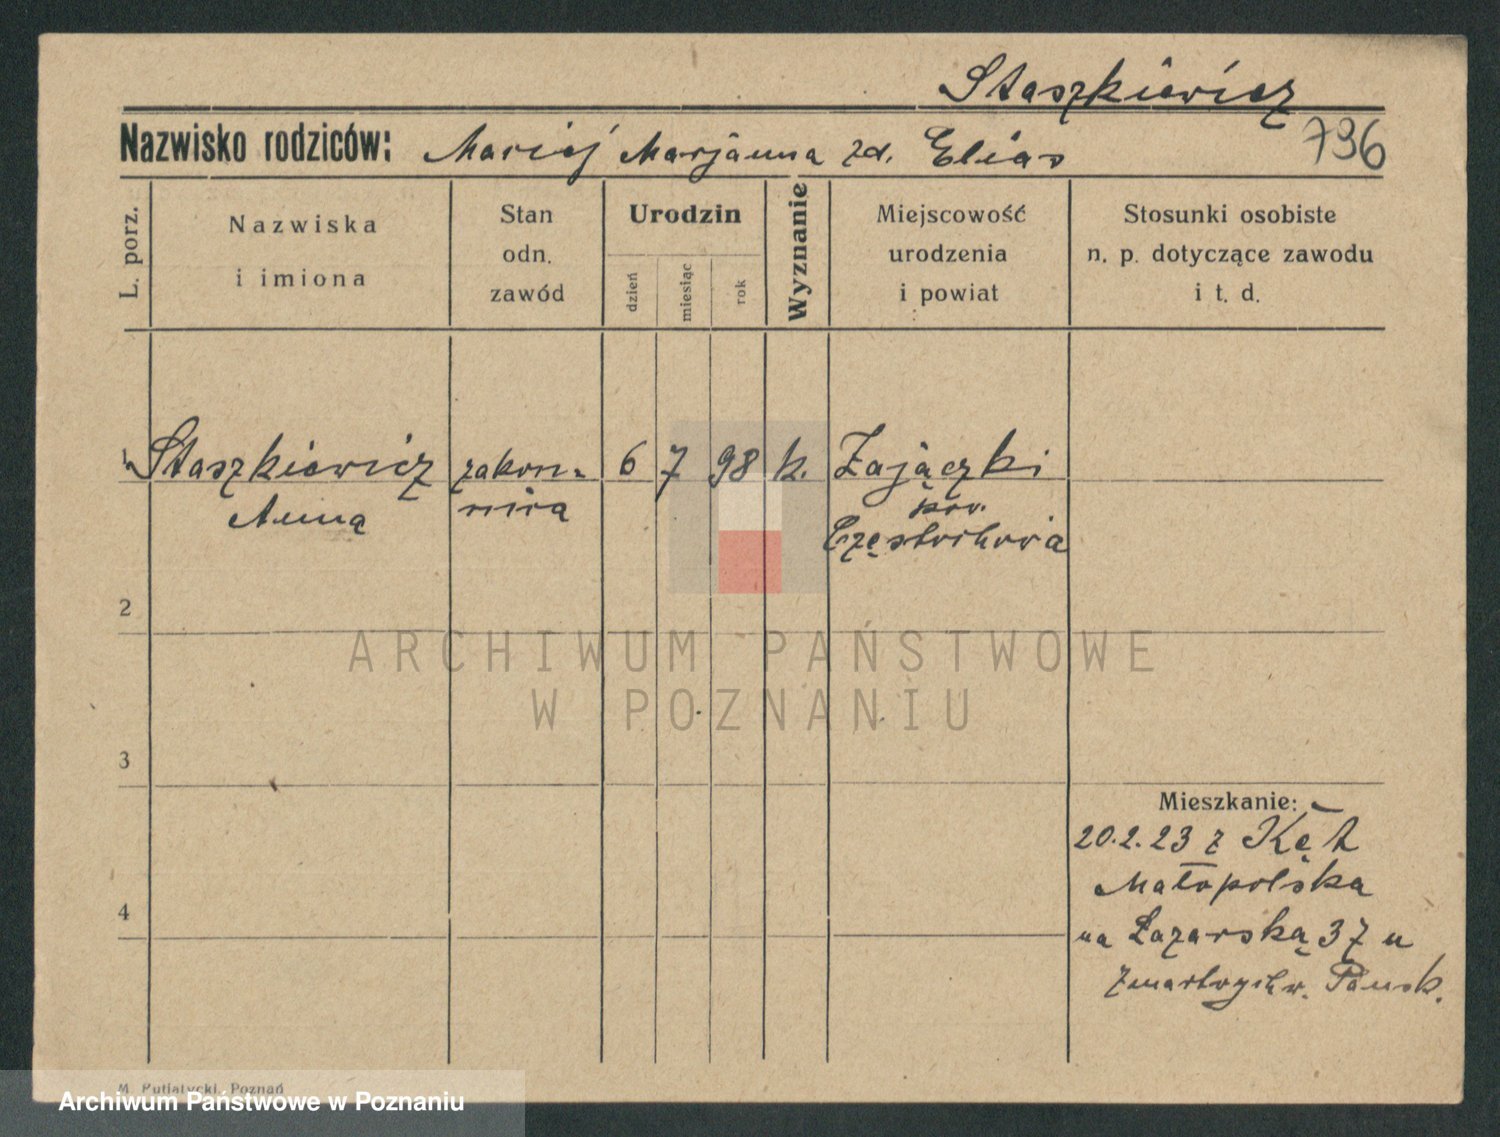 Staszkiewicz
Nazwisko rodziców: Maciej Marjanna zd. Elias
736
L. porz.
Nazwiska
i imiona
Stan
odn.
zawód
Urodzin
dzień
miesiąc
rok
Wyznanie
Miejscowość
urodzenia
i powiat
Stosunki osobiste
n. p. dotyczące zawodu
i t. d.
1 Staszkiewicz zakon- 6 7 98 k. Zajączki
Anna nica pow.
Częstochowa
2
ARCHIWUM PAŃSTWOWE
W POZNANIU
3
Mieszkanie:
20.2.23 z Kęt
Małopolska
4
na Łazarską 37 u
Zmartwychw. Pańsk.
M. Putiatycki, Poznań
Archiwum Państwowe w Poznaniu